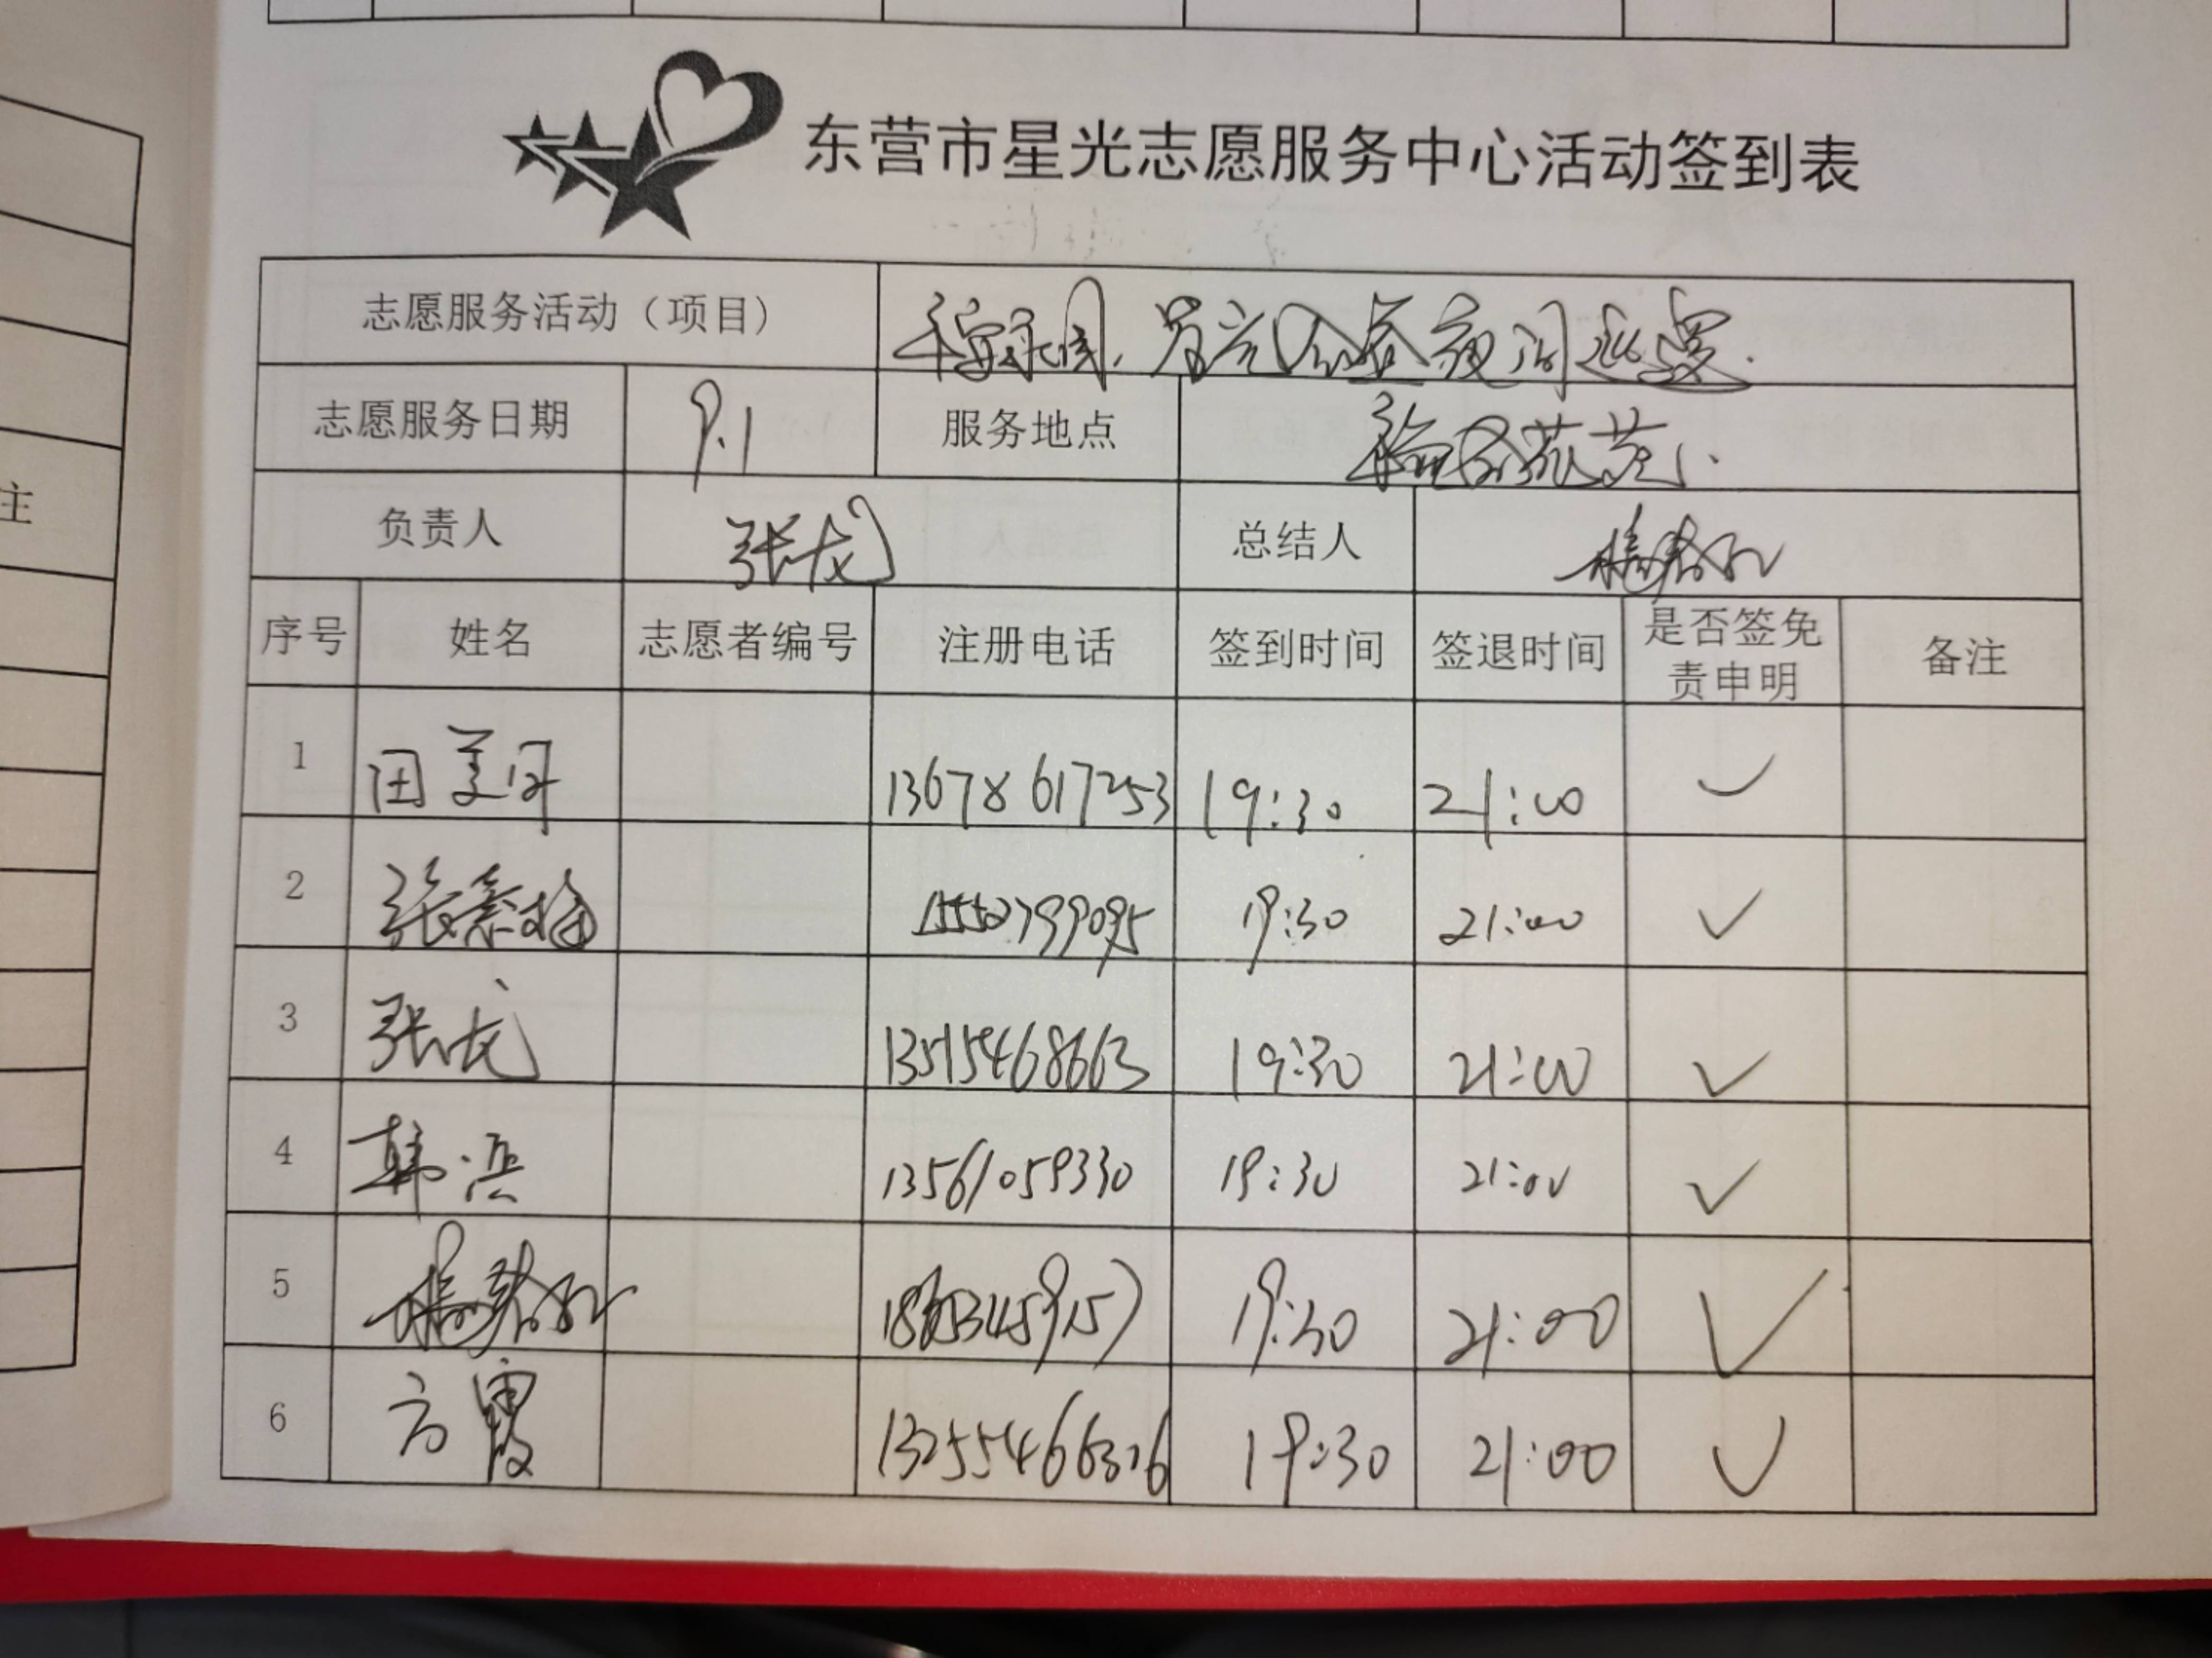 东营市星光志愿服务中心活动签到表
志愿服务活动（项目） 平安家园、星光同在夜间巡逻.
志愿服务日期 9.1 服务地点
负责人 张龙 总结人
序号 姓名 志愿者编号 注册电话 签到时间 签退时间 是否签免责申明 备注
1 田美丹 13678617253 19:30 21:00 ✓
2 张素梅 15552799095 19:30 21:00 ✓
3 张龙 13515468663 19:30 21:00 ✓
4 韩滨 13561059330 19:30 21:00 ✓
5 19:30 21:00 ✓
6 方霞 13255466306 19:30 21:00 ✓
主